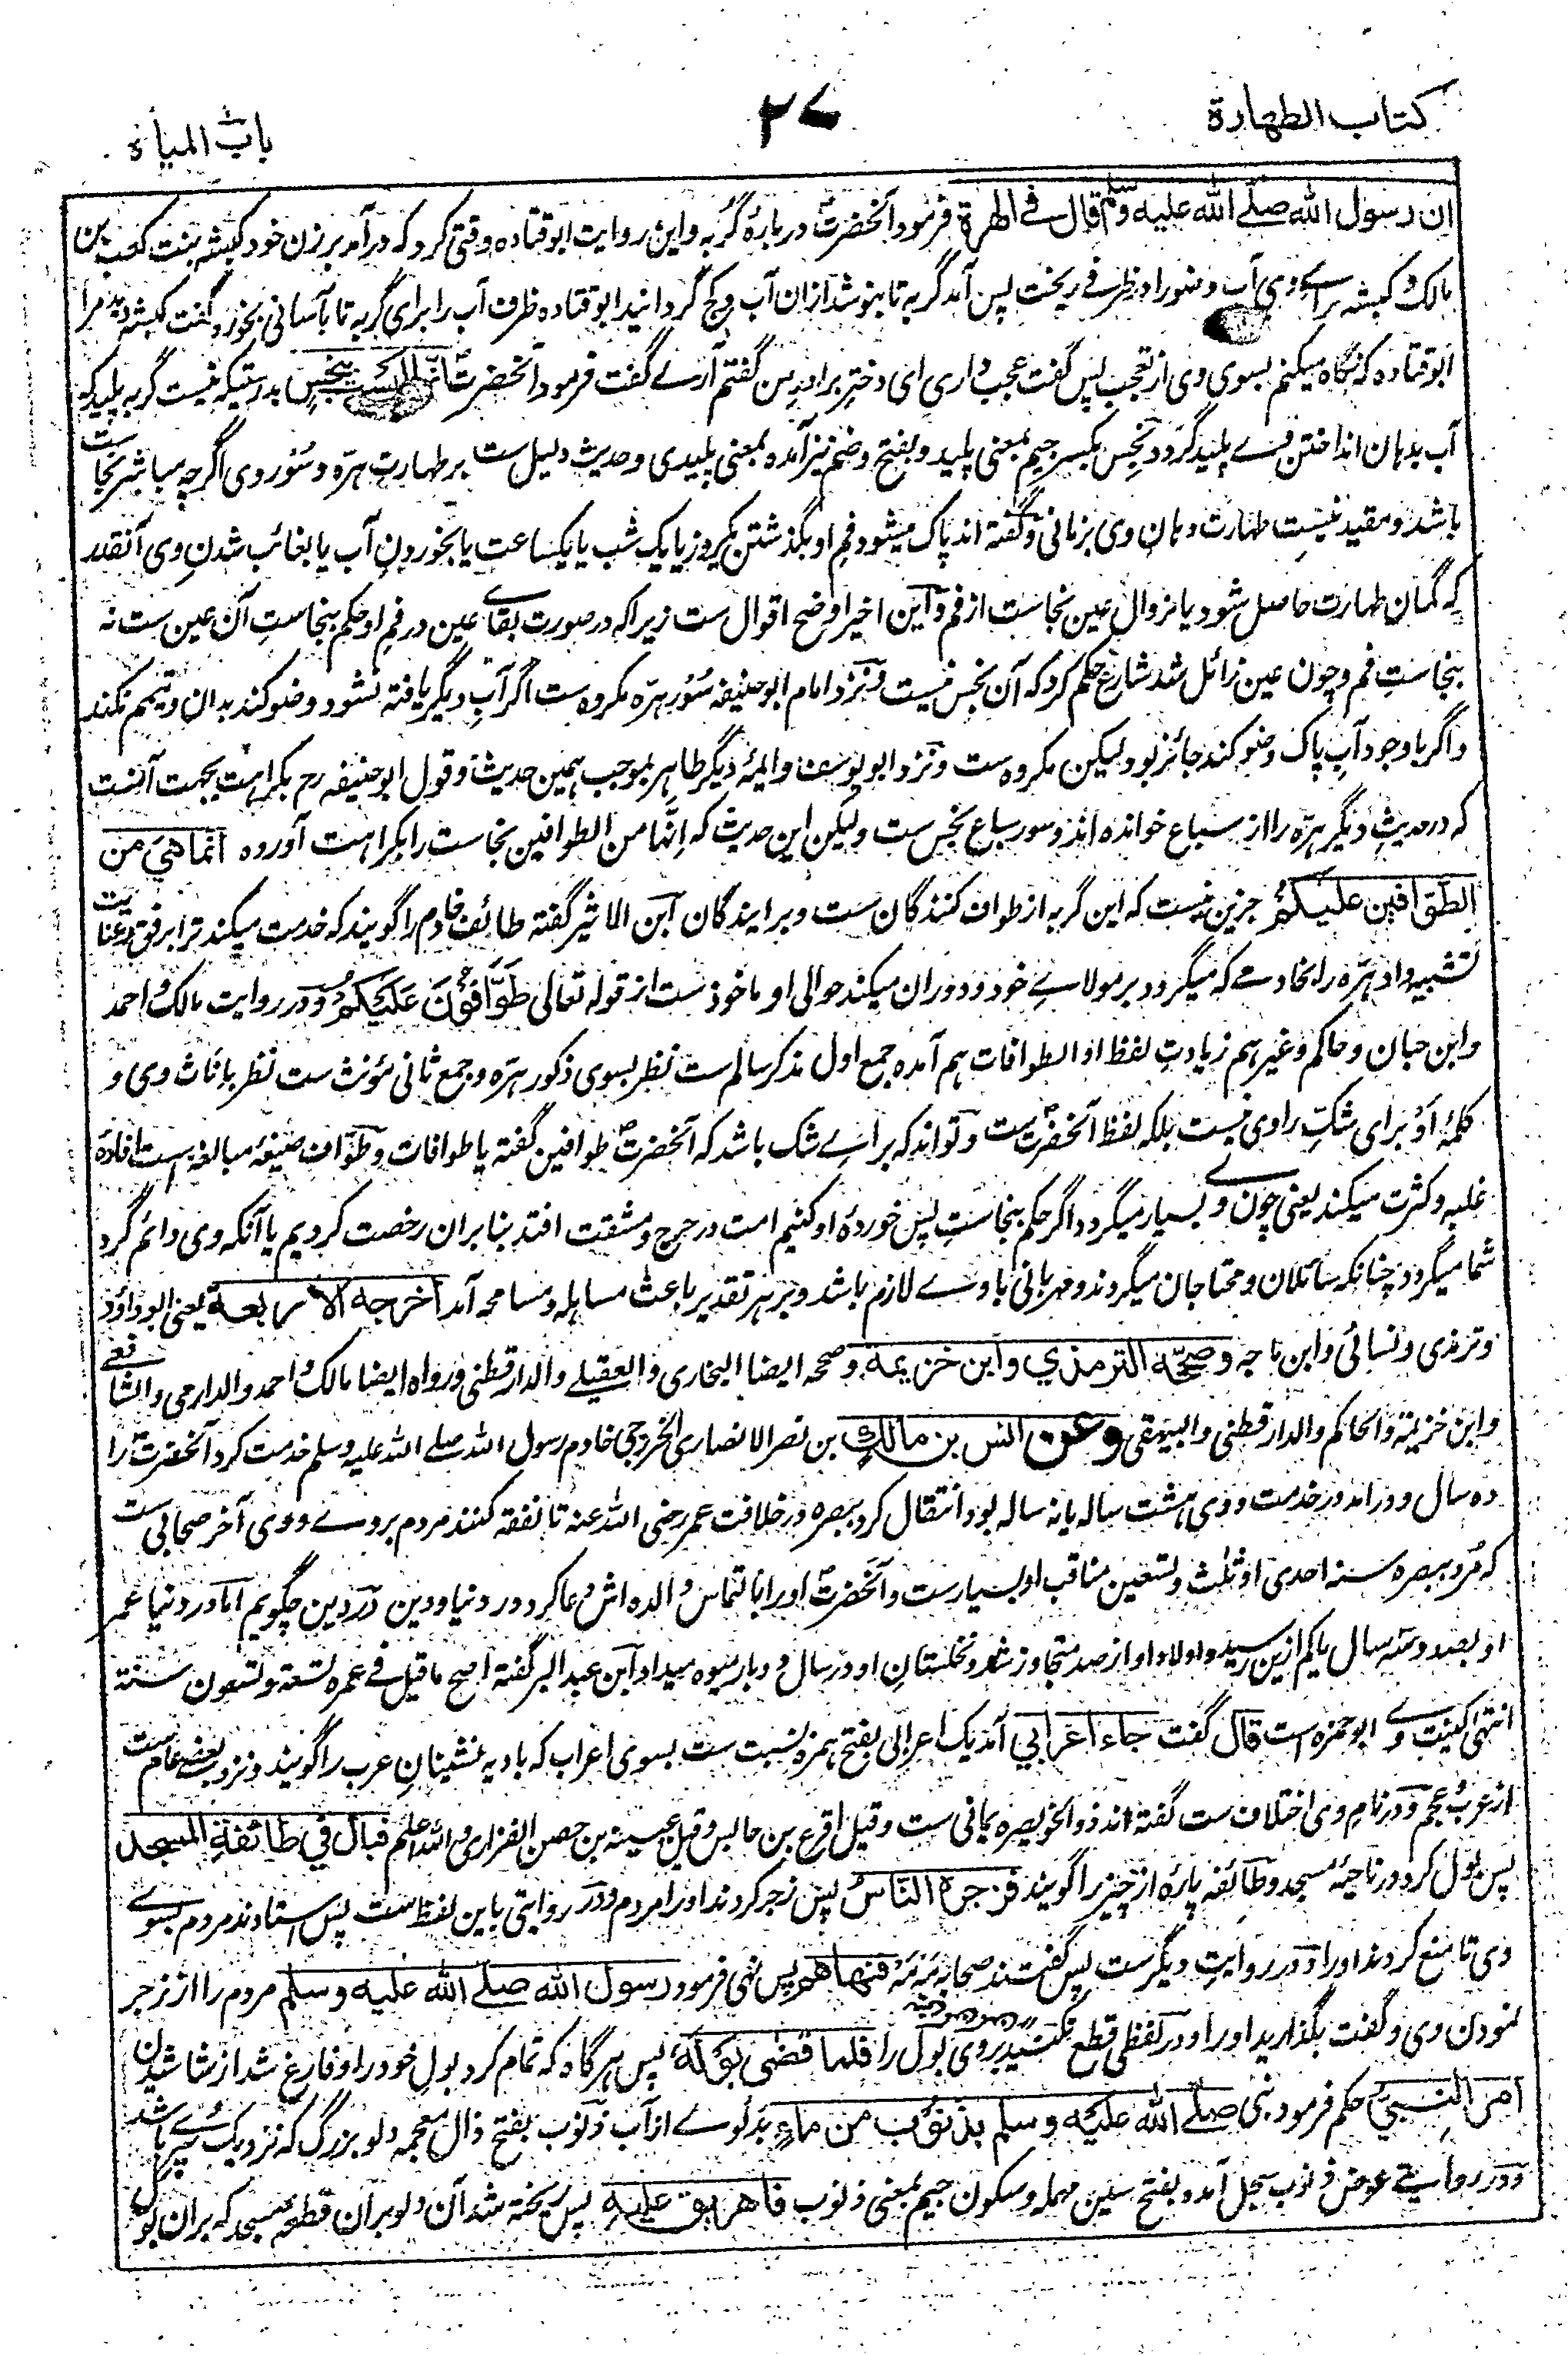 کتاب الطهارة
۲۷
باب المیاه
ان رسول الله صلے الله علیه وسلم قال فے الهرة فرمود آنحضرتؐ دربارهٔ گربه واین روایت ابوقتاده وقتی کرد که درآمد بر زن خود کبشه بنت کعب بن
مالک و کبشه براے وی آب وضو را در ظرفے ریخت پس آمد گربه تا بنوشد ازان آب و کج گردانید ابوقتاده ظرف آب را برای گربه تا بآسانی بخورد گفت کبشه دید مرا
ابوقتاده که نگاه میکنم بسوی وی از تعجب پس گفت عجب داری ای دختر برادر من گفتم آرے گفت فرمود آنحضرتؐ انها لیست بنجس بدرستیکه نیست گربه پلید که
آب بدهان انداختن وے پلید گردد نجس بکسر جیم بمعنی پلید و بفتح وضم نیز آمده بمعنی پلیدی وحدیث دلیل ست بر طهارت هره وسؤر وی اگرچه مباشر نجاست
باشد و مقید نیست طهارت دهان وی بزمانی وگفته اند پاک میشود فم او بگذشتن یکروز یا یک شب یا یکساعت یا بخوردن آب یا بغائب شدن وی آنقدر
که گمان طهارت حاصل شود یا بزوال عین نجاست از فم واین اخیر اوضح اقوال ست زیراکه در صورت بقاے عین در فم او حکم بنجاست آن عین ست نه
بنجاست فم وچون عین زائل شد شارع حکم کرد که آن نجس نیست ونزد امام ابوحنیفه سؤر هره مکروه ست اگر آب دیگر یافته نشود وضو کند بدان وتیمم نکند
واگر باوجود آب پاک وضو کند جائز بود لیکن مکروه ست ونزد ابویوسف وائمهٔ دیگر طاهر بموجب همین حدیث وقول ابوحنیفه رح بکراهت بجهت آنست
که در حدیث دیگر هره را از سباع خوانده اند وسور سباع نجس ست ولیکن این حدیث که انها من الطوافین نجاست را بکراهت آورده انما هی من
الطوافین علیکم جز این نیست که این گربه از طواف کنندگان ست وبرآیندگان ابن الاثیر گفته طائف خادم را گویند که خدمت میکند ترا برفق وعنایت
تشبیه داد هره را بخادمے که میگردد بر مولاے خود ودوران میکند حوالی او ماخوذ ست از قوله تعالی طَوَّافُوْنَ عَلَیْکُمْ ودر روایت مالک واحمد
وابن حبان وحاکم وغیرهم زیادت لفظ او الطوافات هم آمده جمع اول مذکر سالم ست نظر بسوی ذکور هره وجمع ثانی مؤنث ست نظر باناث وی و
کلمهٔ اَوْ برای شک راوی نیست بلکه لفظ آنحضرتؐ ست وتواند که براے شک باشد که آنحضرتؐ طوافین گفته یا طوافات وطواف صیغهٔ مبالغه است افادهٔ
غلبه وکثرت میکند یعنی چون وے بسیار میگردد اگر حکم بنجاست پس خوردهٔ او کنیم امت در حرج ومشقت افتد بنابران رخصت کردیم یا آنکه وی دائم گرد
شما میگردد چنانکه سائلان ومحتاجان میگردند ومهربانی باوے لازم باشد وبر هر تقدیر باعث مساهله ومسامحه آمد اخرجه الاربعة یعنی ابوداؤد
وترمذی ونسائی وابن ماجه وصححه الترمذي وابن خزیمة وصححه ایضا البخاری والعقیلے والدارقطنی ورواه ایضا مالک واحمد والدارمی والشافعے
وابن خزیمة والحاکم والدارقطنی والبیهقی وعن انس بن مالك بن نصر الانصاری الخزرجی خادم رسول الله صلے الله علیه وسلم خدمت کرد آنحضرتؐ را
ده سال ودرآمد در خدمت ووی هشت ساله یا نه ساله بود انتقال کرد ببصره در خلافت عمر رضی الله عنه تا تفقه کنند مردم بر وے ووی آخر صحابی ست
که مرد ببصره سنه احدی او ثلث وتسعین مناقب او بسیارست وآنحضرتؐ او را بالتماس والده اش دعا کرد در دنیا ودین در دین چگویم اما در دنیا عمر
او بصد وسه سال یا کم ازین رسیده واولاد او از صد متجاوز شد ونخلستان او در سال دو بار میوه میداد ابن عبد البر گفته اصح ما قیل فے عمره تسعة وتسعون سنة
انتهی کنیت وے ابوحمزه است قال گفت جاء اعرابي آمد یک اعرابی بفتح همزه نسبت ست بسوی اعراب که بادیه نشینان عرب را گویند ونزد بعضے عام ست
از عرب وعجم ودر نام وی اختلاف ست گفته اند ذو الخویصره یمانی ست وقیل اقرع بن حابس وقیل عیینه بن حصن الفزاری والله اعلم فبال في طائفة المسجد
پس بول کرد در ناحیهٔ مسجد وطائفه پارهٔ از چیز را گویند فزجره الناس پس زجر کردند او را مردم ودر روایتی باین لفظ ست پس استادند مردم بسوے
وی تا منع کردند او را ودر روایت دیگرست پس گفتند صحابه مَه مَه فنهاهم پس نهی فرمود رسول الله صلے الله علیه وسلم مردم را از زجر
نمودن وی وگفت بگذارید او را ودر لفظی قطع نکنید بر وی بول را فلما قضی بوله پس هرگاه که تمام کرد بول خود را وفارغ شد از شاشیدن
امر النبي حکم فرمود نبی صلے الله علیه وسلم بذنوب من ماء بدلوے از آب ذنوب بفتح ذال معجمه دلو بزرگ که نزدیک بپرے باشد
ودر روایتے عوض ذنوب سجل آمده بفتح سین مهمله وسکون جیم بمعنی ذنوب فاهریق علیه پس ریخته شد آن دلو بران قطعهٔ مسجد که بران بول